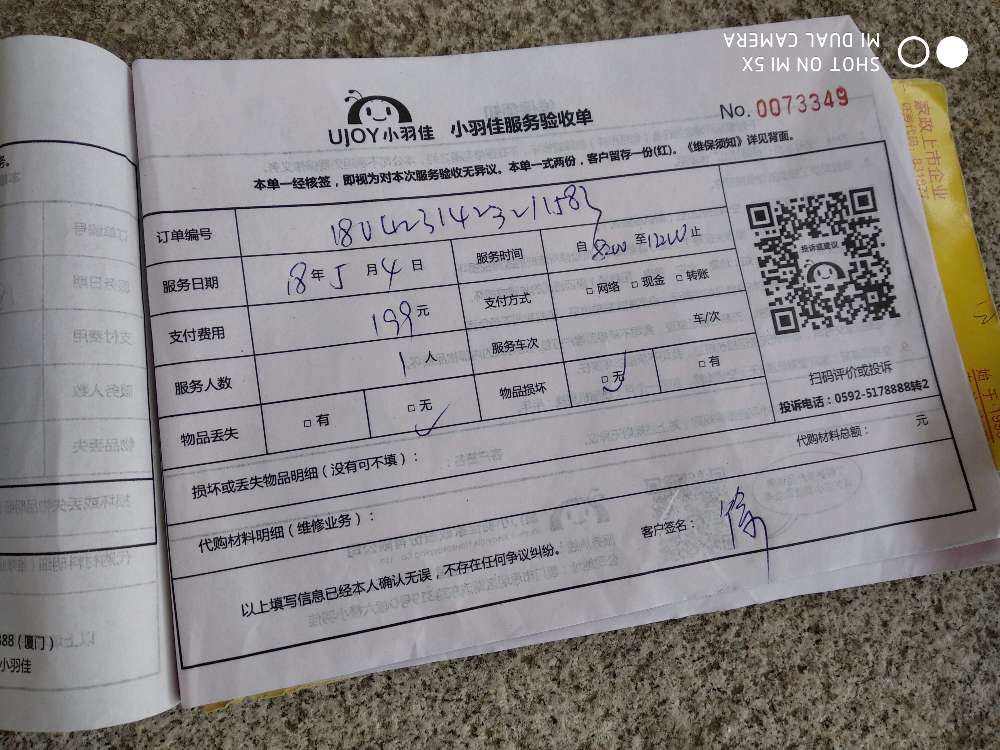 SHOT ON MI 5X
MI DUAL CAMERA
UJOY小羽佳 小羽佳服务验收单
No. 0073349
本单一经核签，即视为对本次服务验收无异议。本单一式两份，客户留存一份(红)。《维保须知》详见背面。
订单编号
服务日期 18年5月4日 服务时间 自8:00至12:00止
支付费用 199元 支付方式 □网络 □现金 □转账
服务人数 1人 服务车次 车/次
物品丢失 □有 □无 ✓ 物品损坏 □无 ✓ □有
投诉或建议
扫码评价或投诉
投诉电话：0592-5178888转2
损坏或丢失物品明细（没有可不填）：
代购材料总额： 元
代购材料明细（维修业务）：
客户签名： 徐
以上填写信息已经本人确认无误，不存在任何争议纠纷。
家政上市企业
888（厦门）
小羽佳